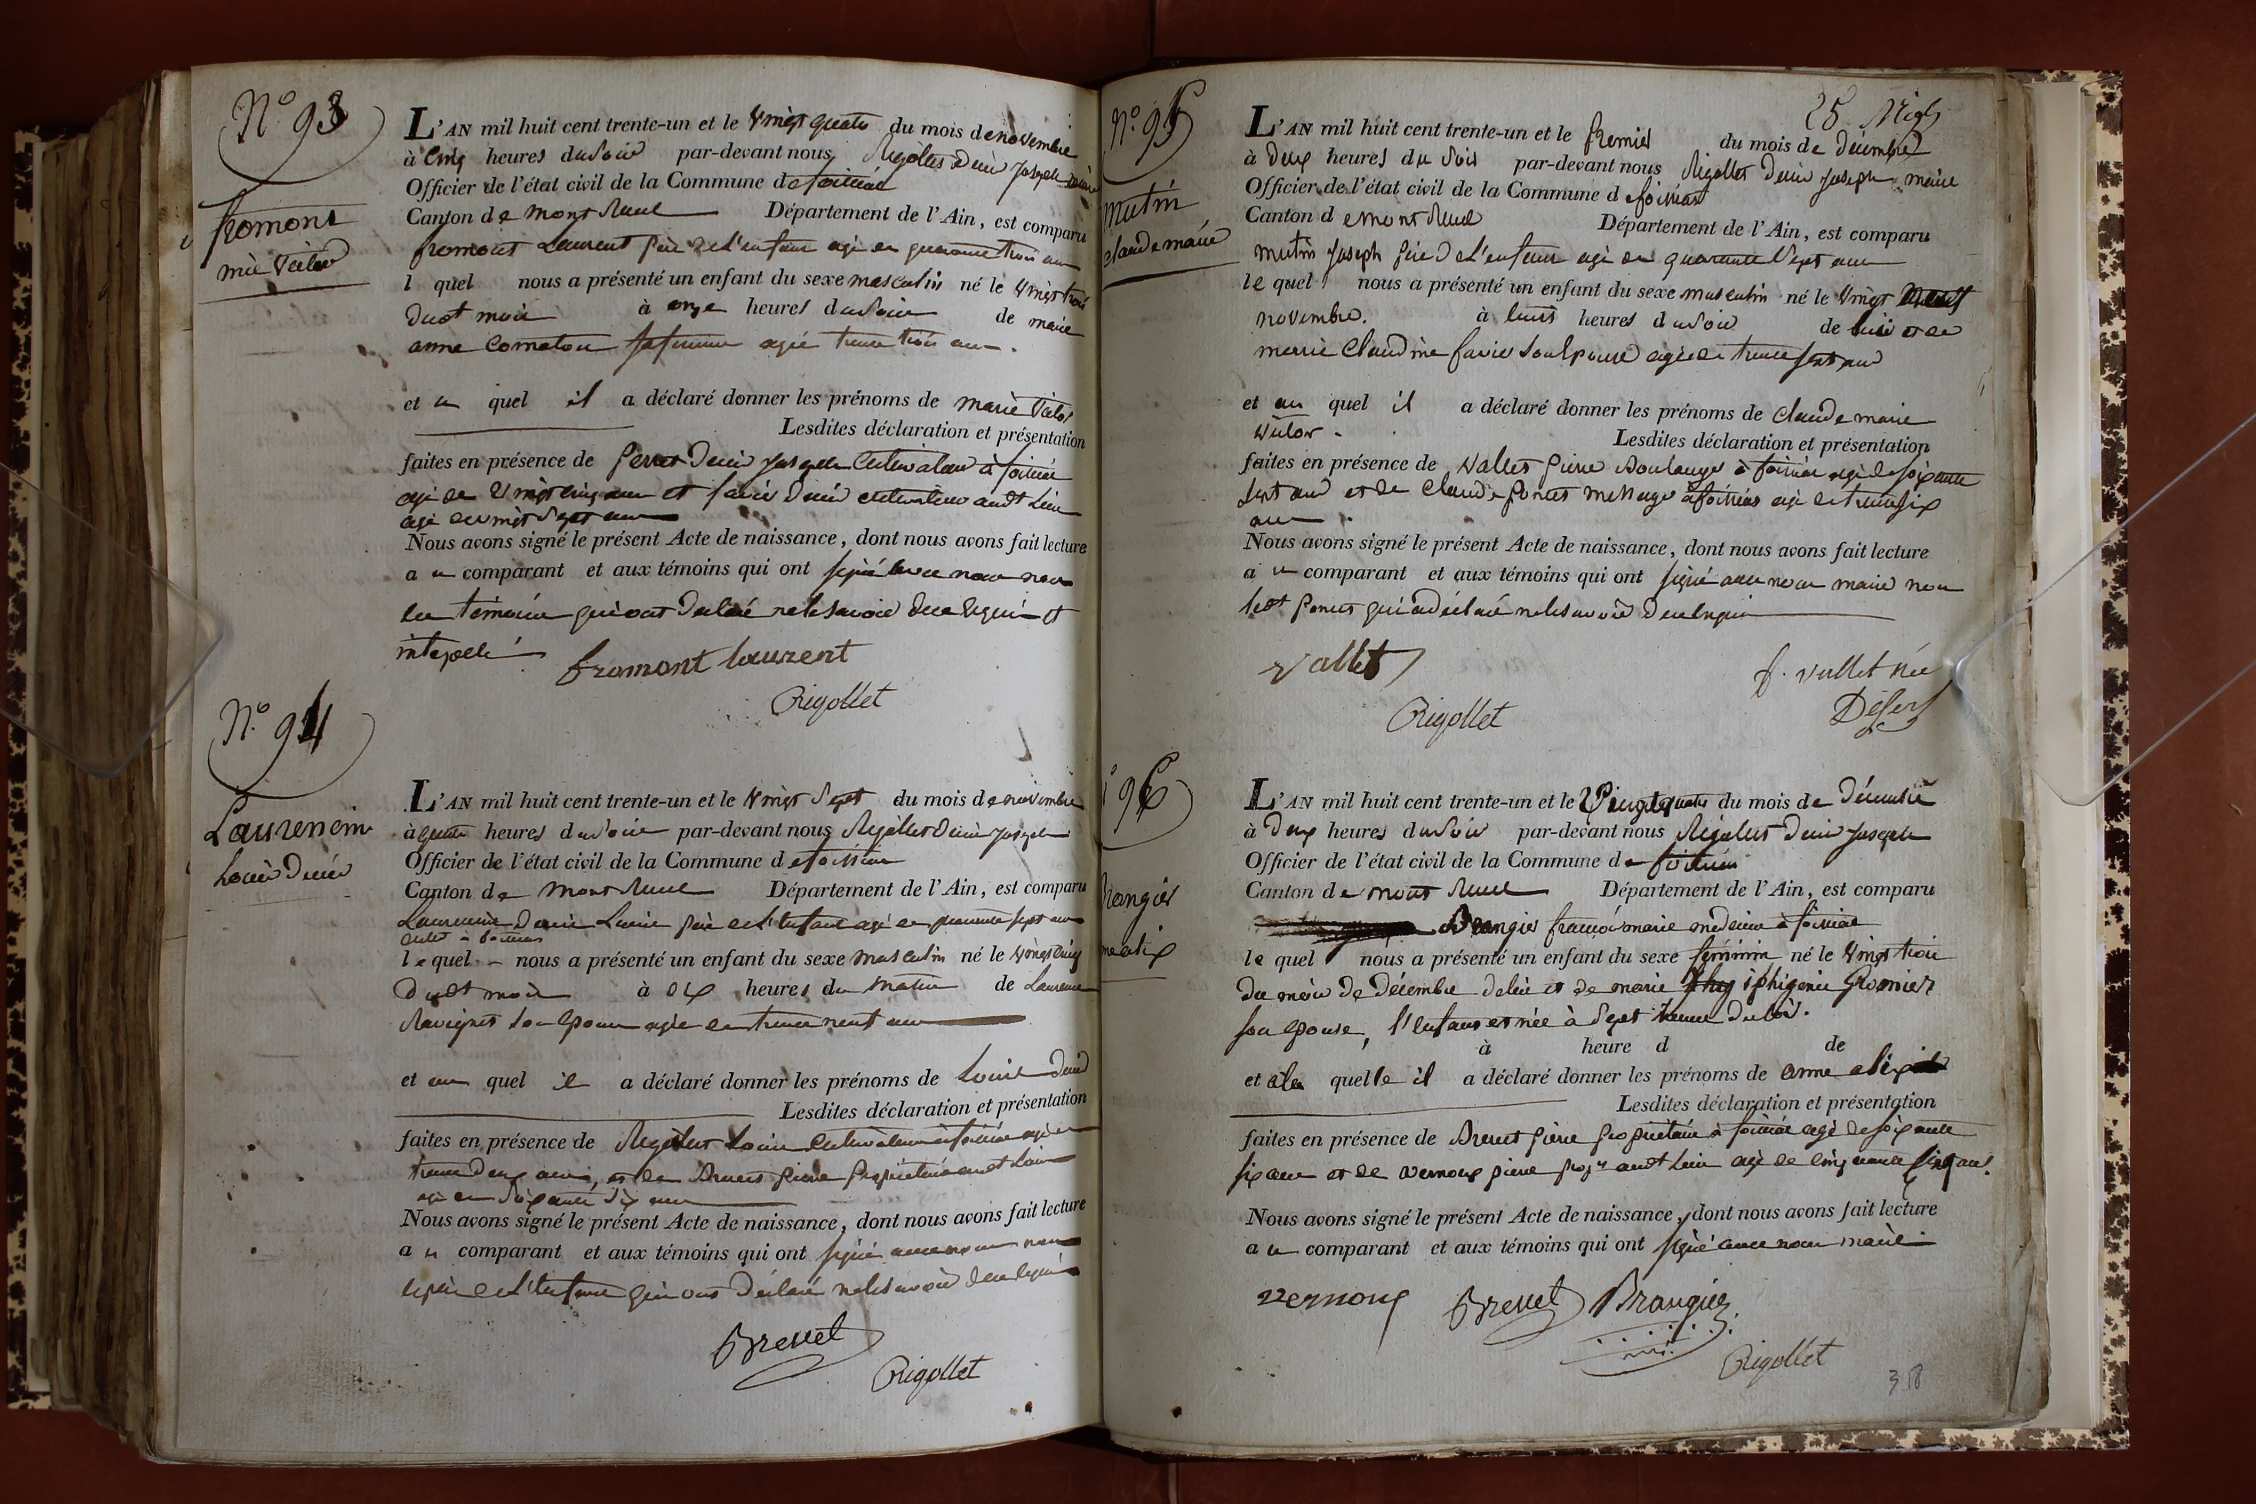 N° 93
fromont
L'AN mil huit cent trente-un et le vingt quatre du mois de novembre
à cinq heures du soir par-devant nous Rigollet Denis Joseph maire
Officier de l'état civil de la Commune de
Canton de Mont Revel Département de l'Ain, est comparu
fromont Laurent père de l'enfant agé de quarante trois ans
l quel nous a présenté un enfant du sexe masculin né le vingt trois
dudt mois à onze heures du soir de marie
anne sa femme agée trente trois ans.
et au quel il a déclaré donner les prénoms de marie
Lesdites déclaration et présentation
faites en présence de Denis Joseph cultivateur à
agé de vingt cinq ans et Denis cultivateur audt Lieu
agé de vingt sept ans
Nous avons signé le présent Acte de naissance, dont nous avons fait lecture
a u comparant et aux témoins qui ont signé avec nous non
les témoins qui ont déclaré ne le savoir de ce requis et
interpelé
fromont laurent
Rigollet
N° 94
Laurencin
Louis Denis
L'AN mil huit cent trente-un et le vingt sept du mois de novembre
à quatre heures du soir par-devant nous Rigollet Denis Joseph
Officier de l'état civil de la Commune de
Canton de Mont Revel Département de l'Ain, est comparu
Laurencin Denis Louis père de l'enfant agé de quarante sept ans
le quel nous a présenté un enfant du sexe masculin né le vingt cinq
dudt mois à dix heures du matin de Laurence
son épouse agée de trente neuf ans
et au quel il a déclaré donner les prénoms de Louis Denis
Lesdites déclaration et présentation
faites en présence de Rigollet Louis cultivateur à agé de
trente deux ans, et de Brevet pierre propriétaire audt Lieu
agé de soixante six ans
Nous avons signé le présent Acte de naissance, dont nous avons fait lecture
a u comparant et aux témoins qui ont signé avec nous non
le père de l'enfant qui ont déclaré ne le savoir de ce requis
Brevet
Rigollet
25
N° 95
mutin
claude marie
L'AN mil huit cent trente-un et le premier du mois de décembre
à deux heures du soir par-devant nous Rigollet Denis Joseph maire
Officier de l'état civil de la Commune d
Canton de mont Revel Département de l'Ain, est comparu
mutin Joseph père de l'enfant agé de quarante sept ans
le quel nous a présenté un enfant du sexe masculin né le vingt neuf
novembre. à huit heures du soir de lui et de
marie Claudine favier son épouse agée de trente sept ans
et au quel il a déclaré donner les prénoms de claude marie
victor.
Lesdites déclaration et présentation
faites en présence de vallet pierre boulanger à agé de soixante
sept ans et de Claude poncet à agé de trente six
ans
Nous avons signé le présent Acte de naissance, dont nous avons fait lecture
a u comparant et aux témoins qui ont signé avec nous maire non
ledt poncet qui a déclaré ne le savoir de ce requis
Vallet
f. vallet née
Rigollet
96
L'AN mil huit cent trente-un et le Vingt quatre du mois de Décembre
à deux heures du soir par-devant nous Rigollet Denis Joseph
Officier de l'état civil de la Commune de
Canton de mont Revel Département de l'Ain, est comparu
Brangier françois marie médecin à
le quel nous a présenté un enfant du sexe féminin né le vingt trois
du mois de Décembre de lui et de marie iphigenie Gromier
son épouse, l'enfant est née à sept heures du soir.
à heure d de
et à la quelle il a déclaré donner les prénoms de anne alix
Lesdites déclaration et présentation
faites en présence de Brevet pierre propriétaire à agé de soixante
six ans et de vernoux pierre propre audt Lieu agé de cinquante cinq ans.
Nous avons signé le présent Acte de naissance, dont nous avons fait lecture
a u comparant et aux témoins qui ont signé avec nous maire.
vernoux
Brevet
Brangier
Rigollet
38